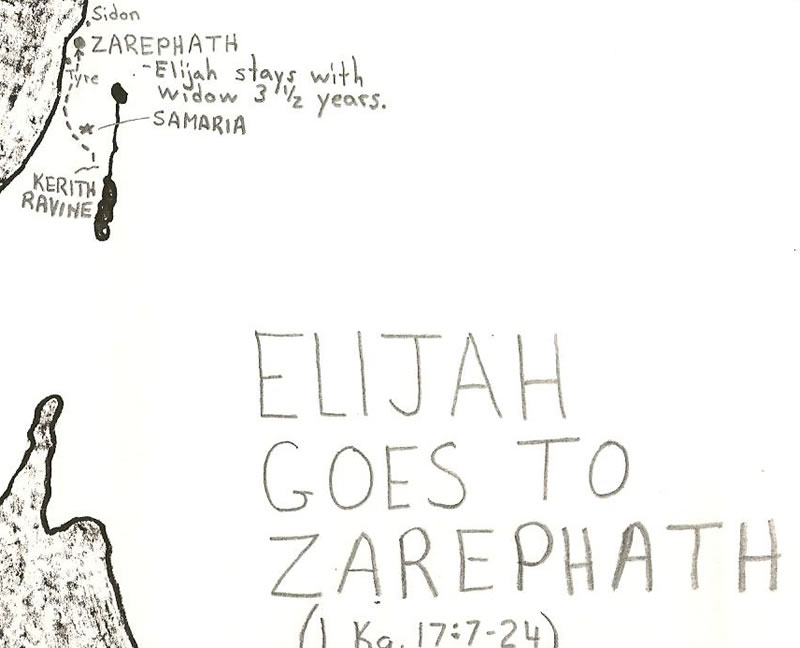 Sidon
ZAREPHATH
Tyre
-Elijah stays with
widow 3 1/2 years.
SAMARIA
KERITH
RAVINE
ELIJAH
GOES TO
ZAREPHATH
(1 Kg. 17:7-24)